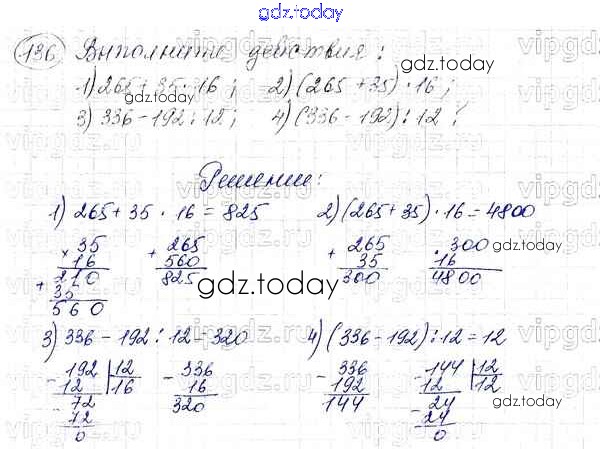 gdz.today
136 Выполните действия:
1) 265 + 35 · 16; 2) (265 + 35) · 16;
gdz.today
3) 336 - 192 : 12; 4) (336 - 192) : 12.
Решение:
1) 265 + 35 · 16 = 825 2) (265 + 35) · 16 = 4800
× 35 + 265 + 265 · 300
16 560 35 16
+ 210 825 300 4800
35
560
gdz.today
3) 336 - 192 : 12 = 320 4) (336 - 192) : 12 = 12
- 192 | 12 - 336 - 336 - 144 | 12
12 16 16 192 12 12
- 72 320 144 - 24
72 24
0 0
gdz.today
vipgdz.ru